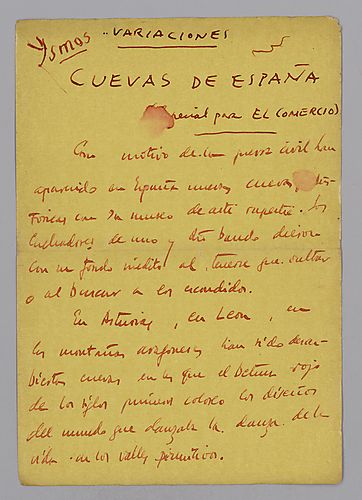 Ysmos
.. VARIACIONES
CUEVAS DE ESPAÑA
(Especial para EL COMERCIO)
Con motivo de la guerra civil han
aparecido en España nuevas cuevas
con su museo de arte rupestre. Los
luchadores de uno y otro bando dieron
con un fondo inédito al tenerse que ocultar
o al buscar a los escondidos.
En Asturias, en León, en
las montañas aragonesas han sido descu-
biertas cuevas en las que el betun rojo
de los siglos primeros coloreó los diseños
del mundo que danzaba la danza de la
vida en los valles primitivos.